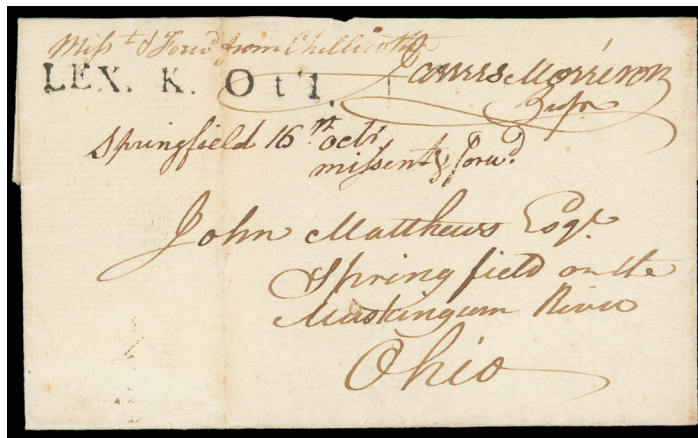 Misst & Forwd from Chillicothe
LEX. K. Oct 1.
James Morrison
Springfield 16th octr
missent & forwd
John Matthews Esqr
Springfield on the
Muskingum River
Ohio